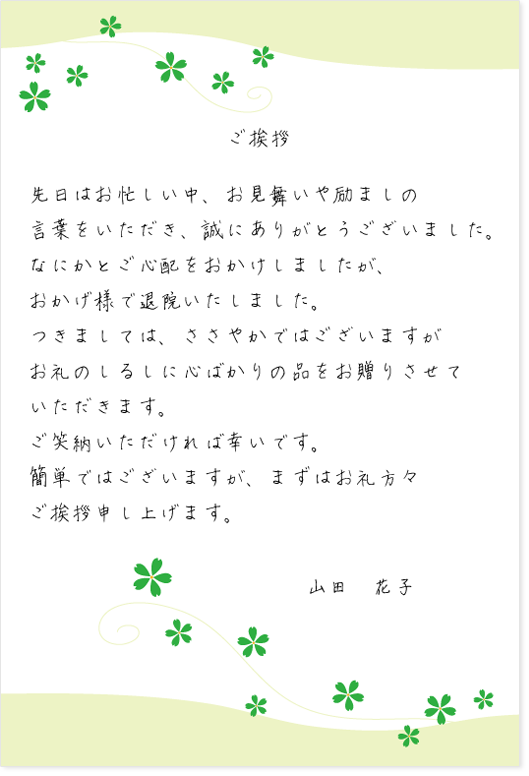 ご挨拶
先日はお忙しい中、お見舞いや励ましの
言葉をいただき、誠にありがとうございました。
なにかとご心配をおかけしましたが、
おかげ様で退院いたしました。
つきましては、ささやかではございますが
お礼のしるしに心ばかりの品をお贈りさせて
いただきます。
ご笑納いただければ幸いです。
簡単ではございますが、まずはお礼方々
ご挨拶申し上げます。
山田　花子